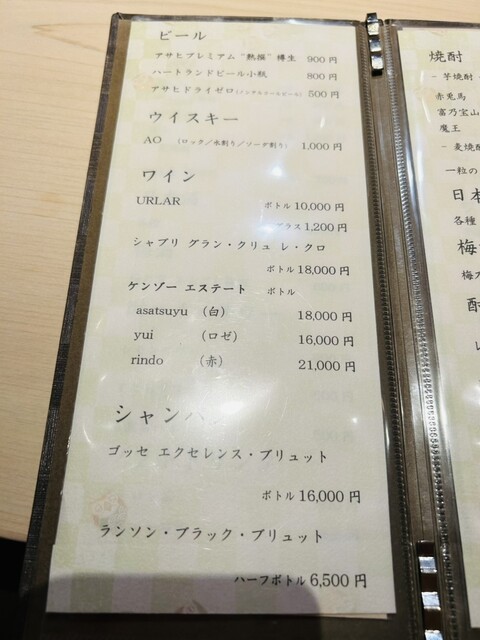 ビール
アサヒプレミアム“熟撰”樽生 900円
ハートランドビール小瓶 800円
アサヒドライゼロ(ノンアルコールビール) 500円
ウイスキー
AO (ロック／水割り／ソーダ割り) 1,000円
ワイン
URLAR ボトル 10,000円
グラス 1,200円
シャブリ グラン・クリュ レ・クロ
ボトル 18,000円
ケンゾー エステート ボトル
asatsuyu (白) 18,000円
yui (ロゼ) 16,000円
rindo (赤) 21,000円
シャンパン
ゴッセ エクセレンス・ブリュット
ボトル 16,000円
ランソン・ブラック・ブリュット
ハーフボトル 6,500円
焼酎
- 芋焼酎
赤兎馬
富乃宝山
魔王
- 麦焼酎
一粒の
日本
各種
梅